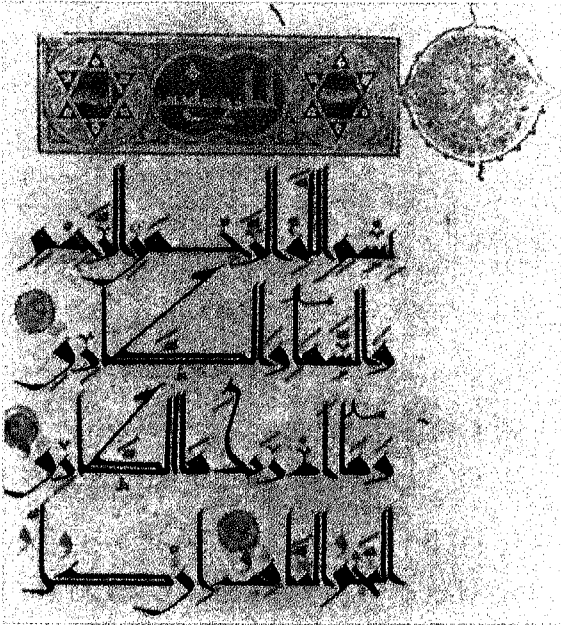 بِسْمِ اللَّهِ الرَّحْمَنِ الرَّحِيمِ
وَالسَّمَآءِ وَالطَّارِقِ
وَمَآ أَدْرَىٰكَ مَا الطَّارِقُ
النَّجْمُ الثَّاقِبُ إِنْ كُلُّ